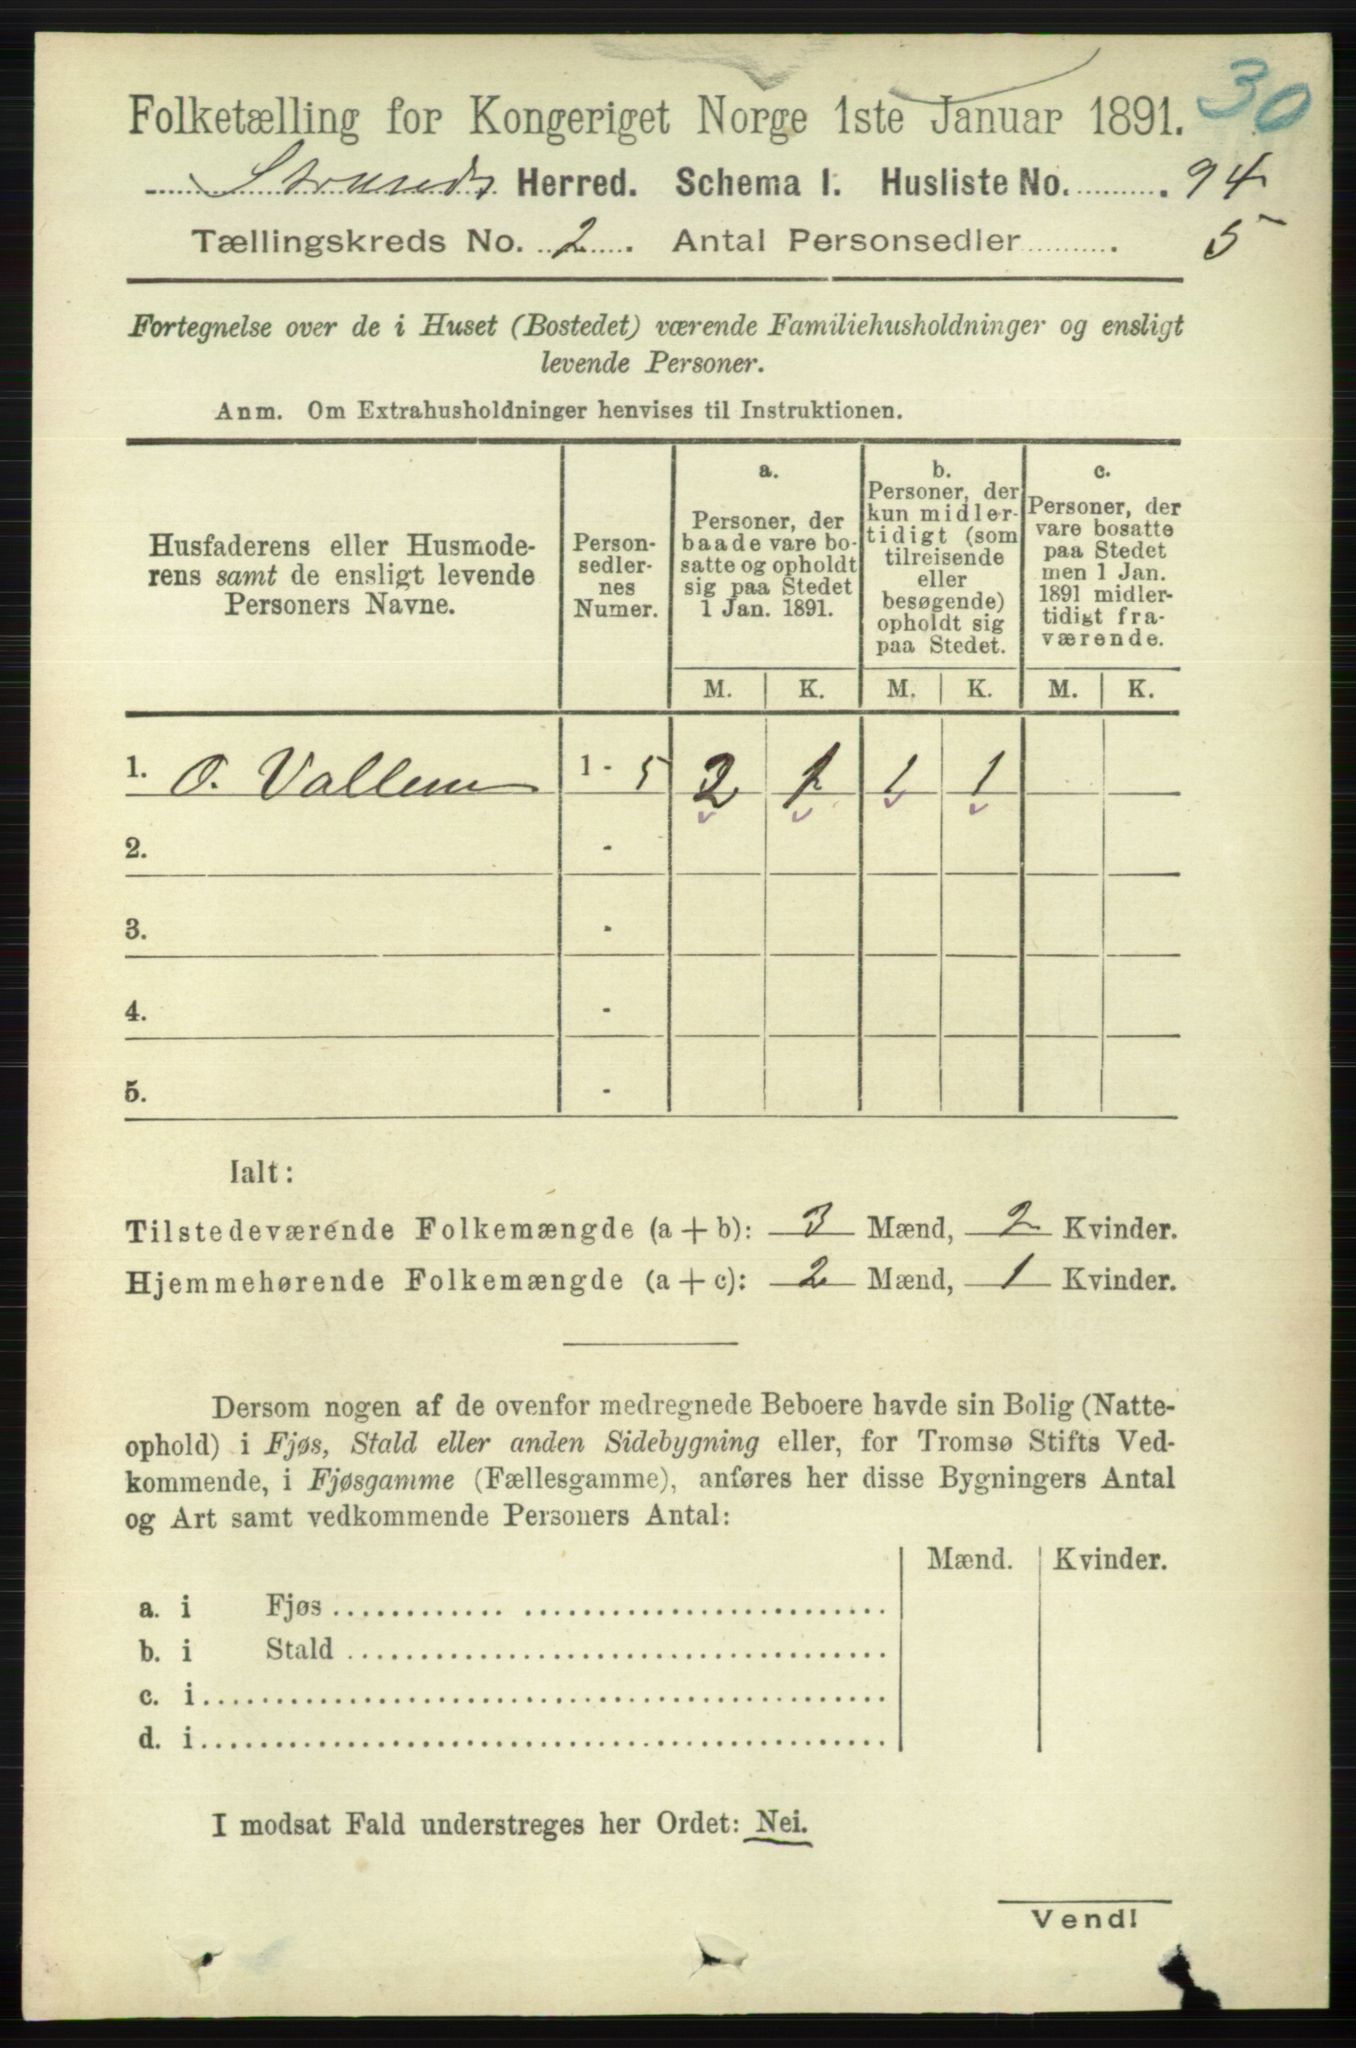 30
Folketælling for Kongeriget Norge 1ste Januar 1891.
Strands Herred. Schema I. Husliste No. 94
Tællingskreds No. 2. Antal Personsedler 5
Fortegnelse over de i Huset (Bostedet) værende Familiehusholdninger og ensligt
levende Personer.
Anm. Om Extrahusholdninger henvises til Instruktionen.
Husfaderens eller Husmode-
rens samt de ensligt levende
Personers Navne.
Person-
sedler-
nes
Numer.
a.
Personer, der
baade vare bo-
satte og opholdt
sig paa Stedet
1 Jan. 1891.
b.
Personer, der
kun midler-
tidigt (som
tilreisende
eller
besøgende)
opholdt sig
paa Stedet.
c.
Personer, der
vare bosatte
paa Stedet
men 1 Jan.
1891 midler-
tidigt fra-
værende.
M. K. M. K. M. K.
1. O. Vallem 1 - 5 2 1 1 1
2. -
3. -
4. -
5. -
Ialt:
Tilstedeværende Folkemængde (a + b): 3 Mænd, 2 Kvinder.
Hjemmehørende Folkemængde (a + c): 2 Mænd, 1 Kvinder.
Dersom nogen af de ovenfor medregnede Beboere havde sin Bolig (Natte-
ophold) i Fjøs, Stald eller anden Sidebygning eller, for Tromsø Stifts Ved-
kommende, i Fjøsgamme (Fællesgamme), anføres her disse Bygningers Antal
og Art samt vedkommende Personers Antal:
Mænd. Kvinder.
a. i Fjøs
b. i Stald
c. i
d. i
I modsat Fald understreges her Ordet: Nei.
Vend!